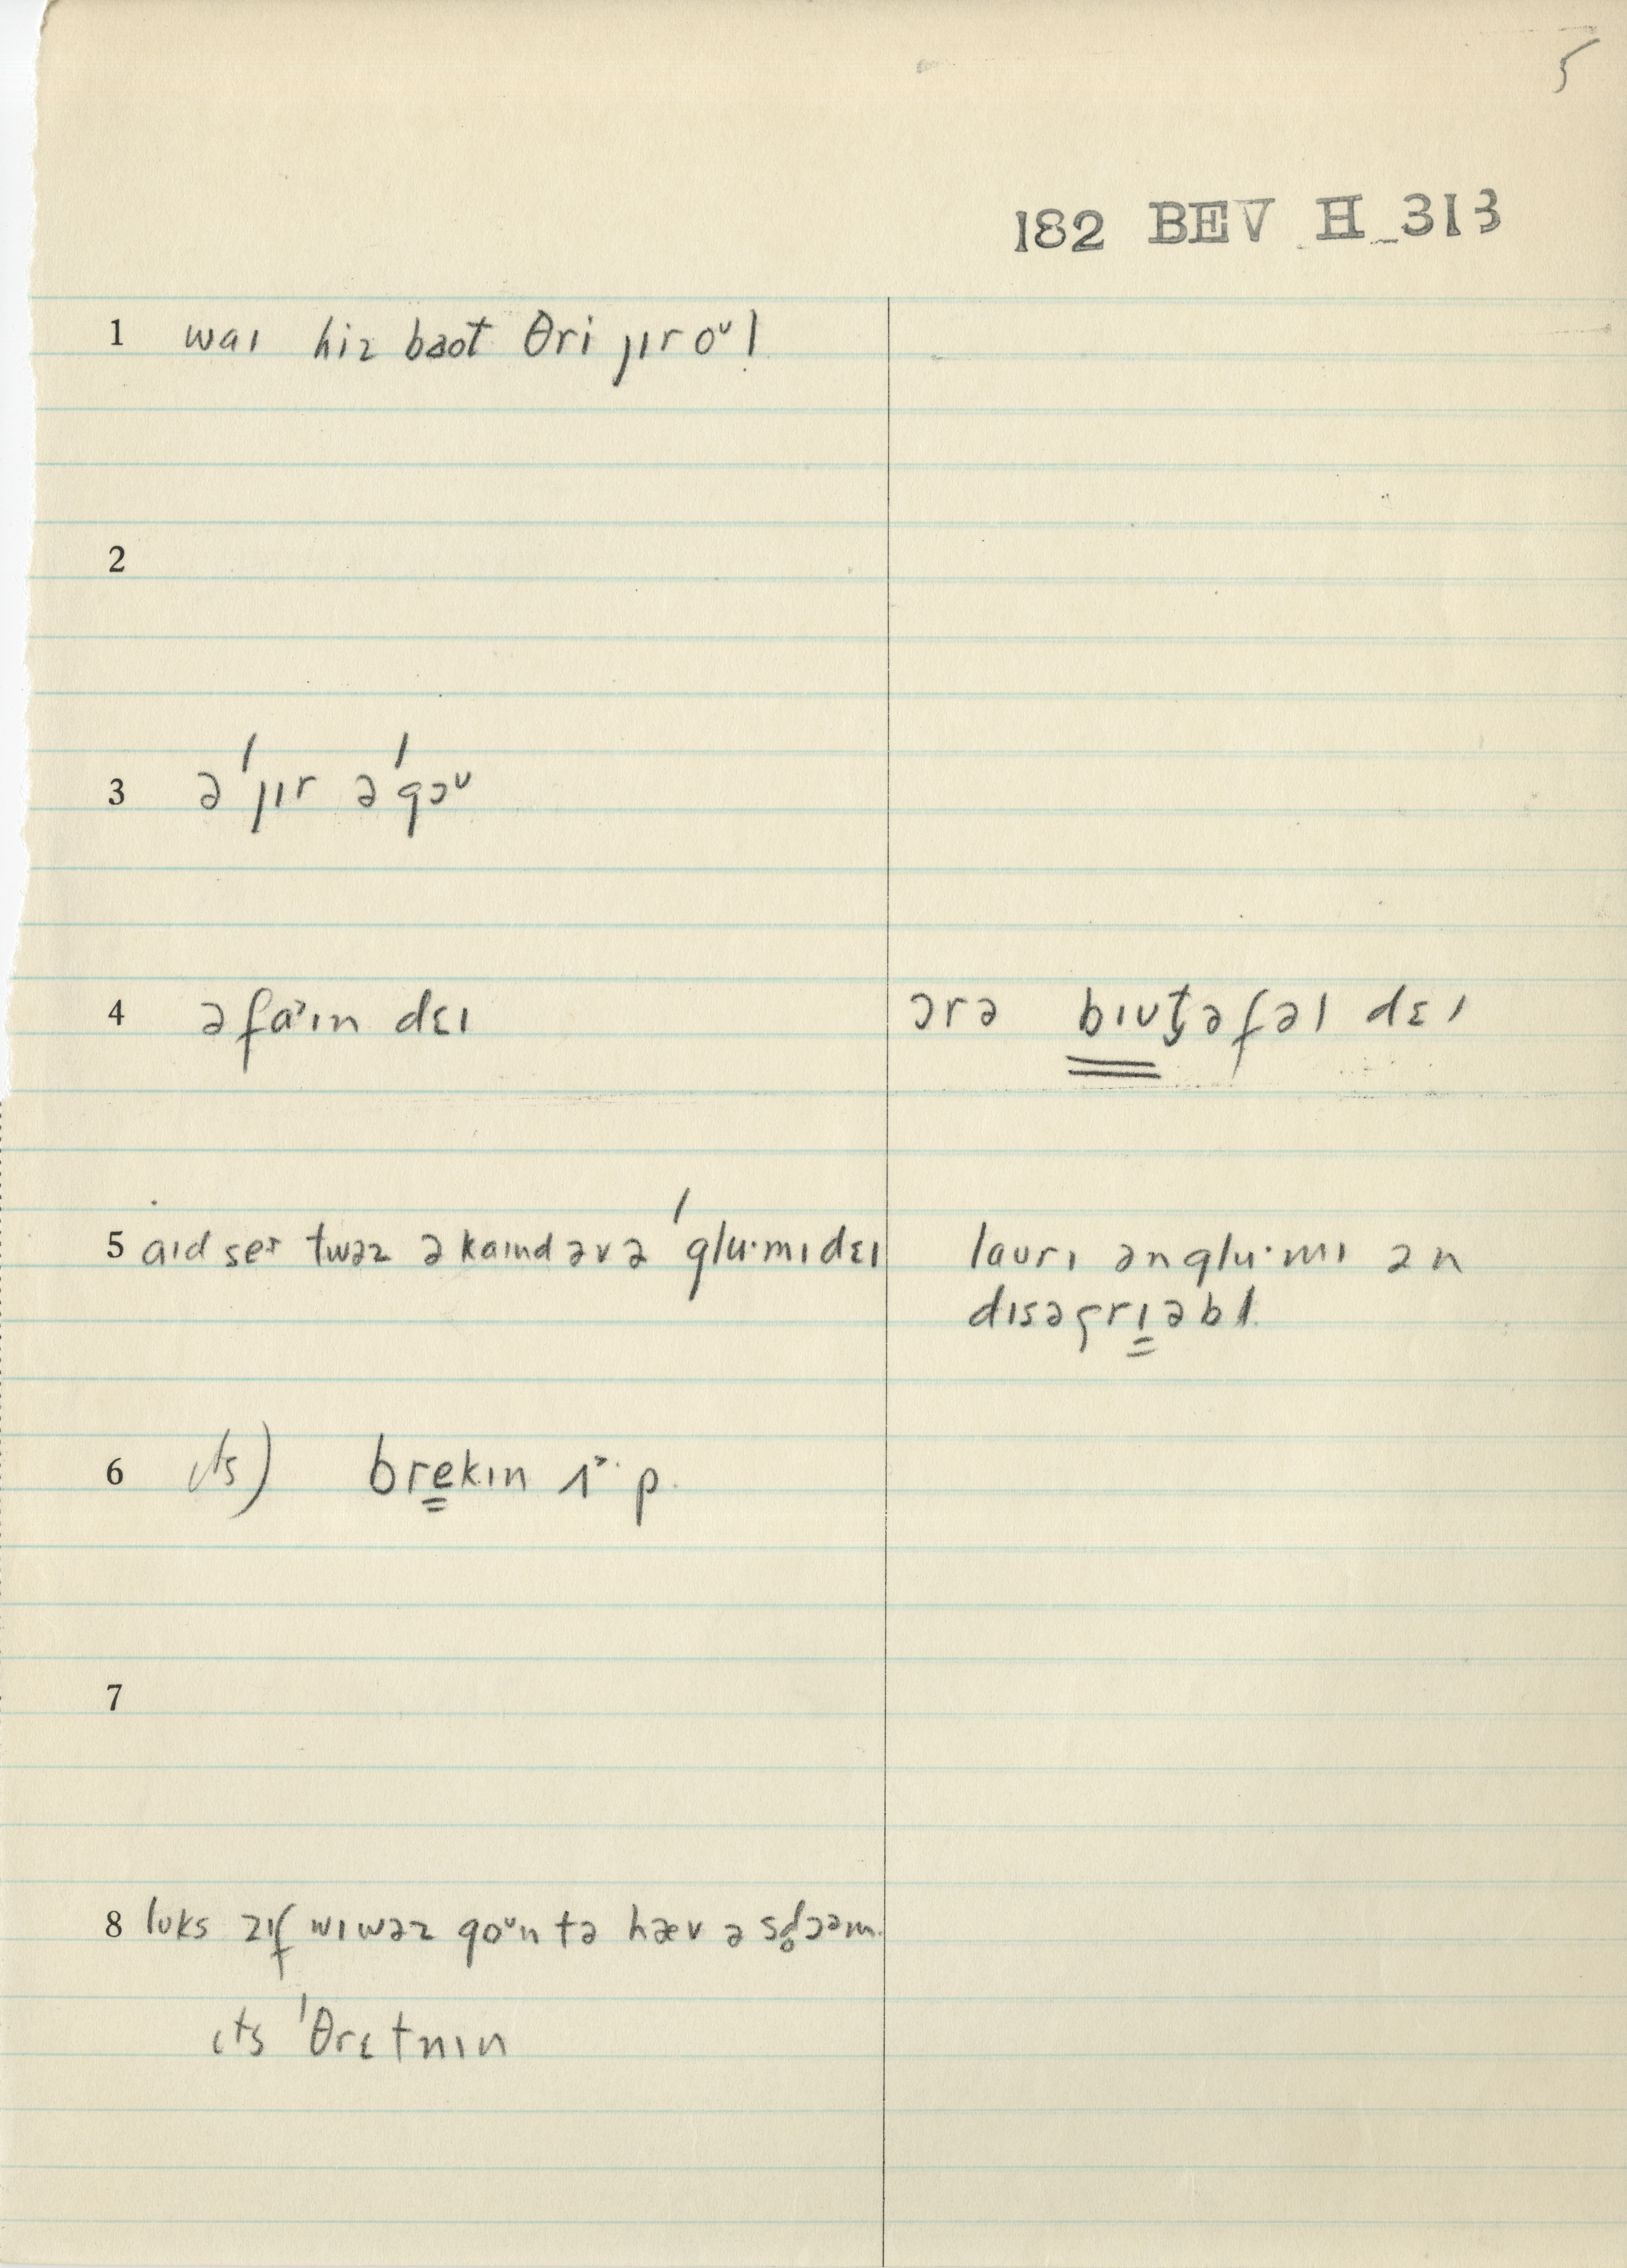 5
182 BEV H 313
1 waɪ hiz baot θri jɪr oᵘl
2
3 ə ˈjɪr əˈgɔᵘ
4 ə faˑɪn dɛɪ ɔrə bɪʊt̬əfəl dɛɪ
5 aɪd seɪ twəz ə kaɪnd əvə ˈgluˑmɪ dɛɪ laurɪ ən gluˑmɪ ən
dɪsəgrɪəbl
6 ɪts) brekɪn ʌˑp
7
8 lʊks əzɪf wɪwəz goᵘn tə hæv ə sd̥ɔəm
ɪts ˈθrɛtnɪn